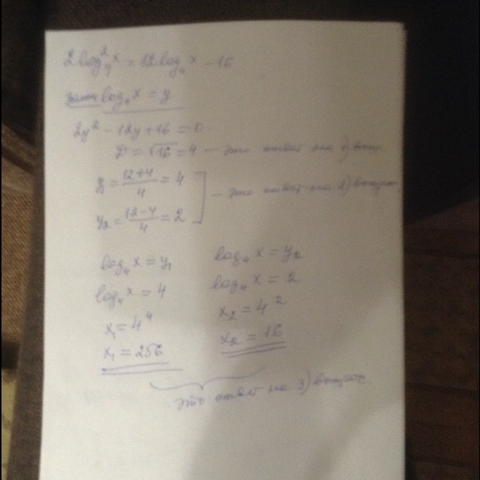 2log₄²x = 12log₄x − 16
log₄x = y
2y² − 12y + 16 = 0
D = √16 = 4 — это ответ на 1) вопр.
y = (12+4)/4 = 4
y₂ = (12−4)/4 = 2
— это ответ на 2) вопрос
log₄x = y₁
log₄x = 4
x₁ = 4⁴
x₁ = 256
log₄x = y₂
log₄x = 2
x₂ = 4²
x₂ = 16
это ответ на 3) вопрос